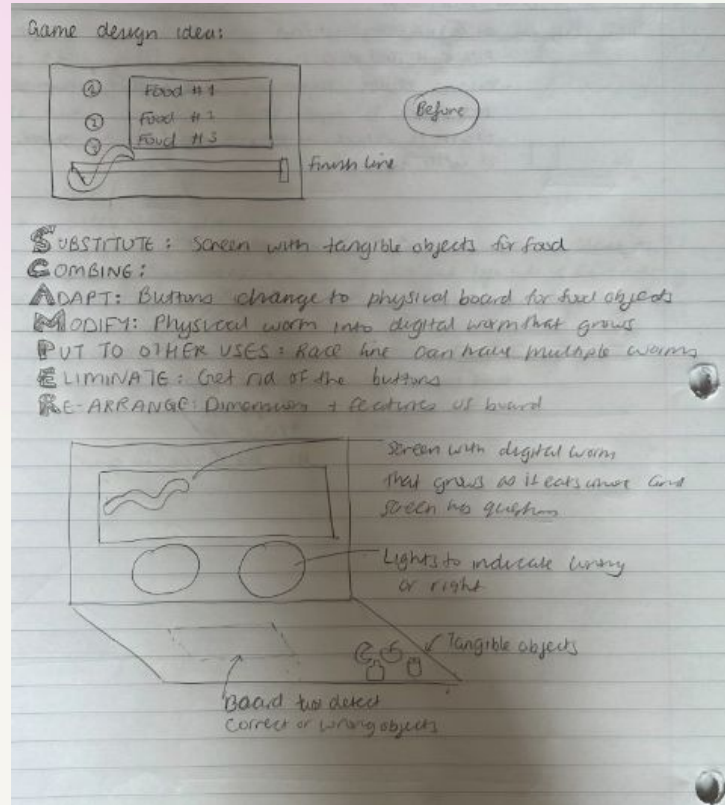 Game design idea:
① Food #1
② Food #2
③ Food #3
Before
Finish line
SUBSTITUTE: Screen with tangible objects for food
COMBINE:
ADAPT: Buttons change to physical board for food objects
MODIFY: Physical worm into digital worm that grows
PUT TO OTHER USES: Race line can have multiple worms
ELIMINATE: Get rid of the buttons
RE-ARRANGE: Dimensions + features of board
Screen with digital worm
that grows as it eats more and
screen has questions
Lights to indicate wrong
or right
Tangible objects
Board to detect
correct or wrong objects